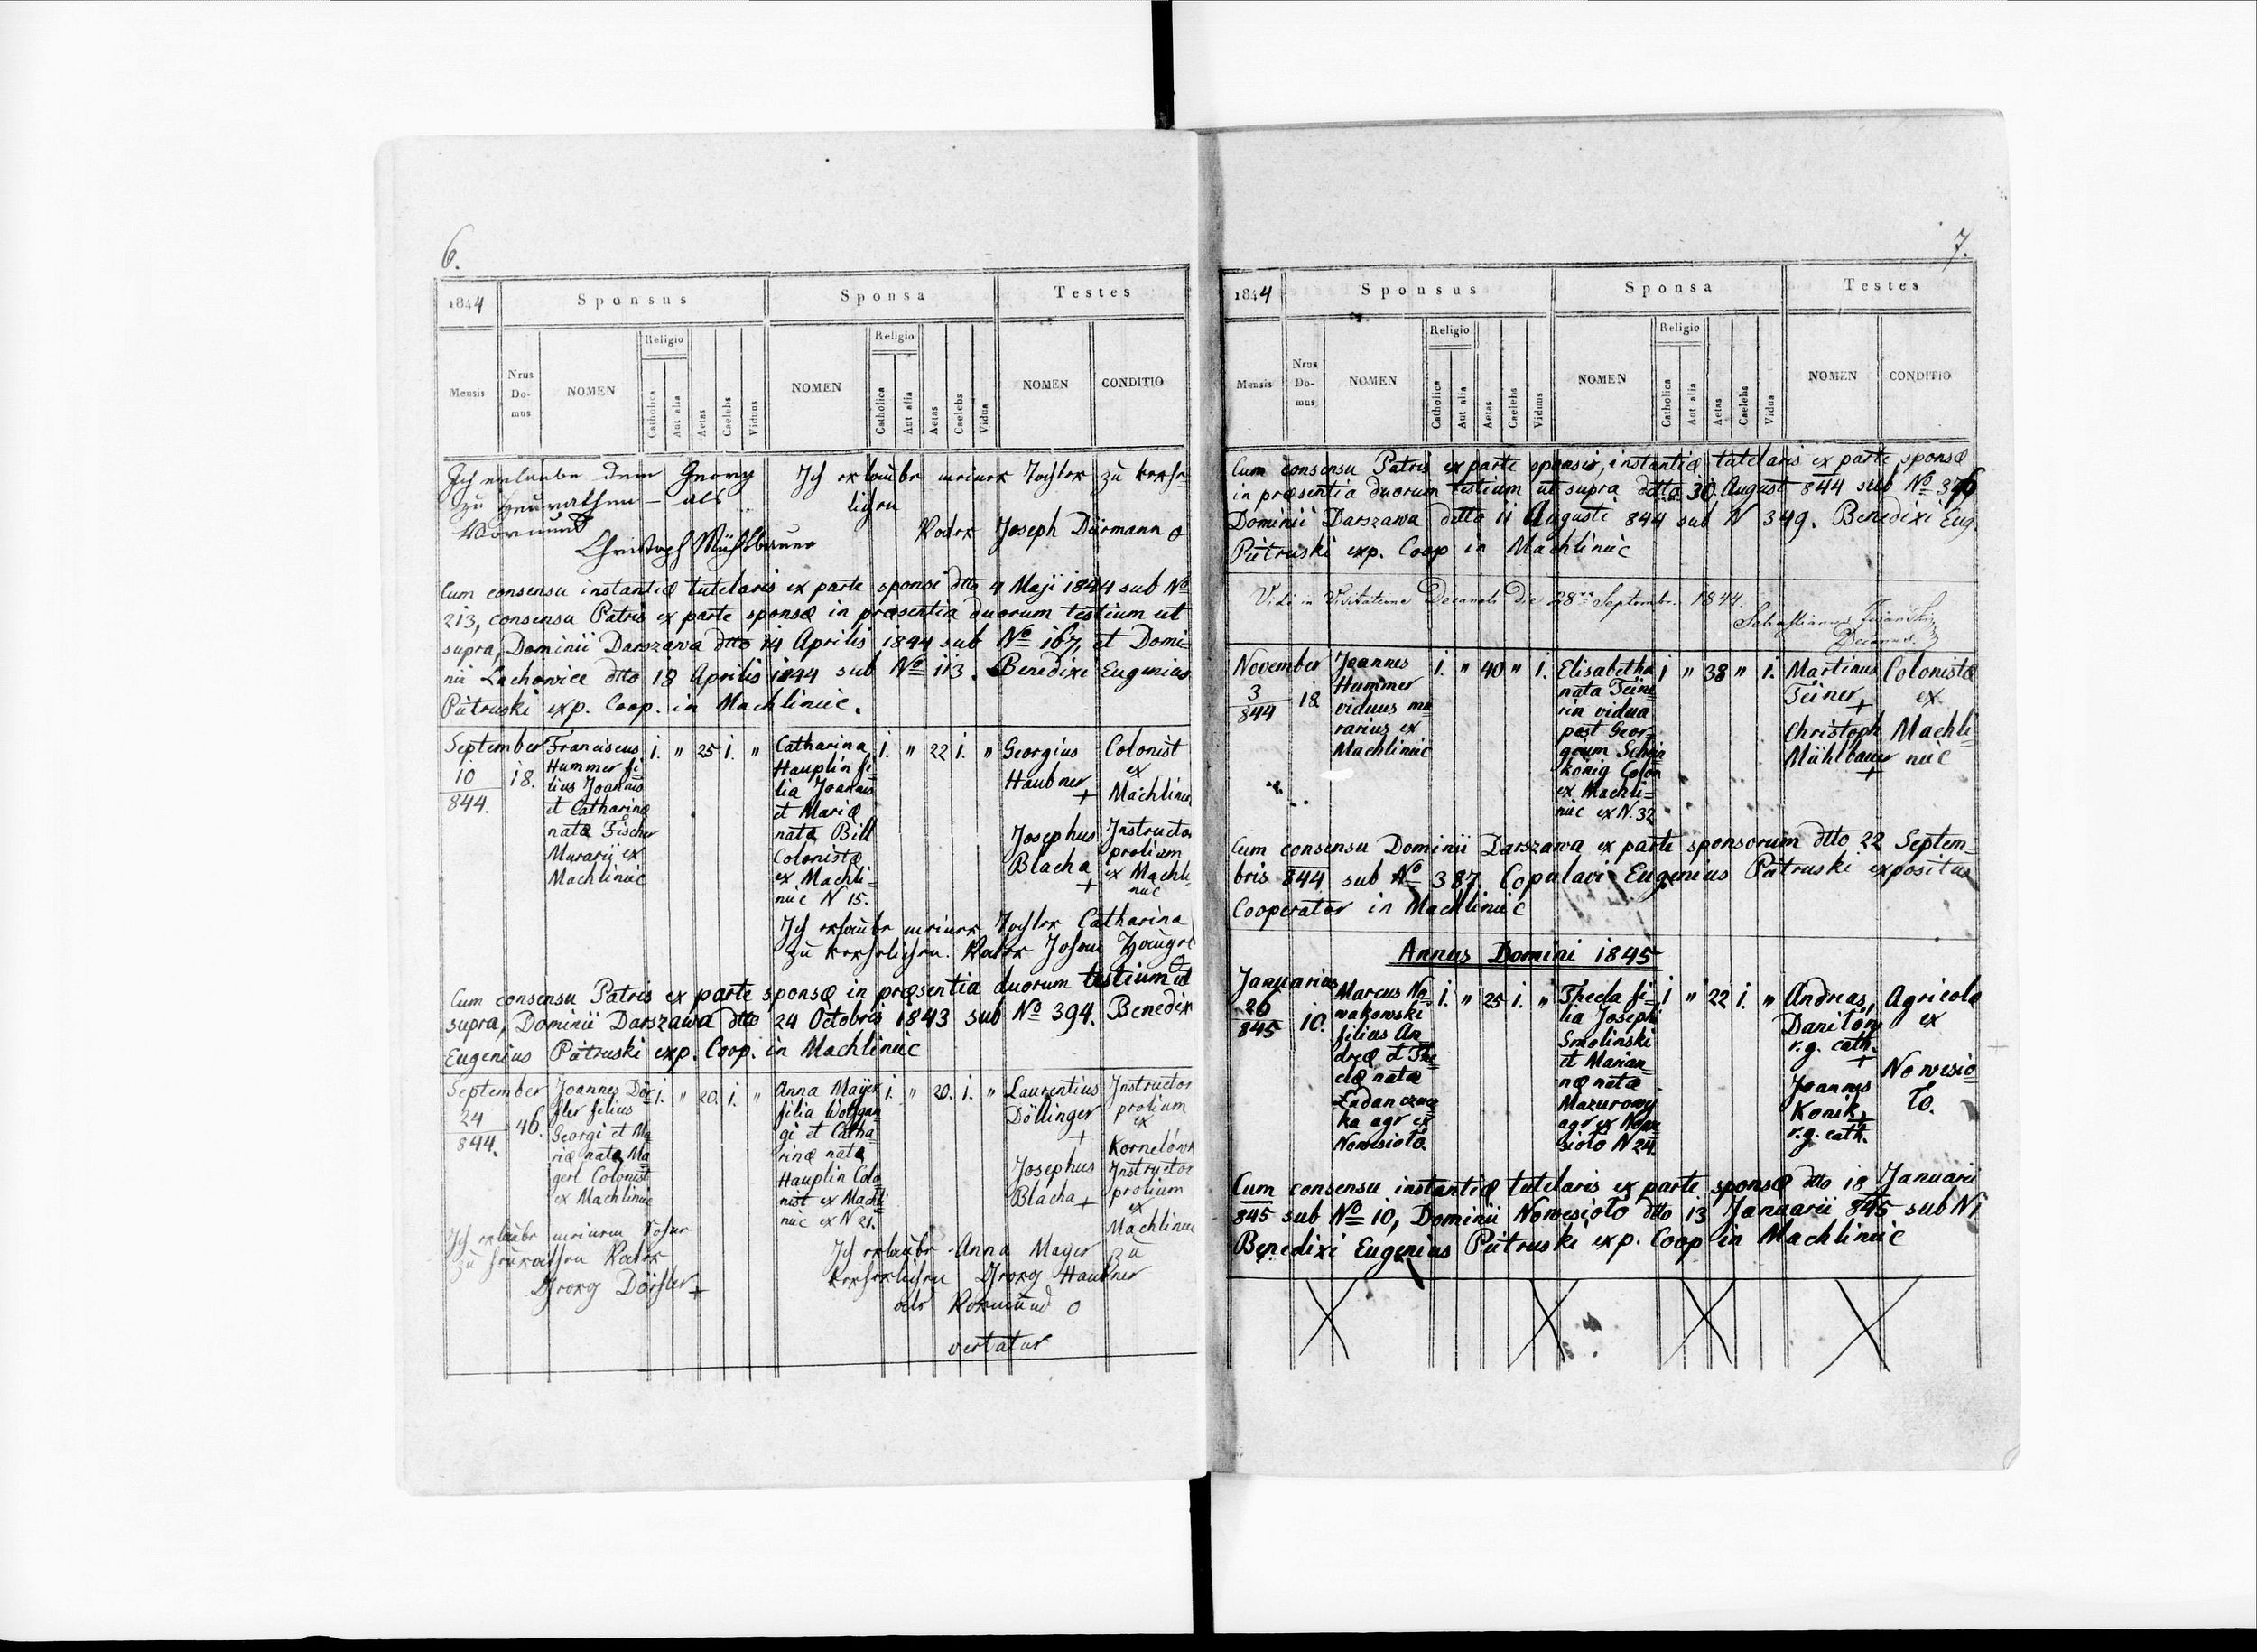 6.
1844 Sponsus Sponsa Testes
Mensis Nrus Do- mus NOMEN Religio Catholica Aut alia Aetas Caelebs Viduus NOMEN Religio Catholica Aut alia Aetas Caelebs Vidua NOMEN CONDITIO
Ich erlaube dem Georg
zu heurathen – als
Vormund
Christoph Mühlbauer
Ich erlaube meiner Tochter zu verehe-
lichen
Vater Joseph Dürmann o
Cum consensu instantiæ tutelaris ex parte sponsi dtto 4 Maji 1844 sub No
213, consensu Patris ex parte sponsæ in præsentia duorum testium ut
supra, Dominii Darszawa dtto 14 Aprilis 1844 sub No 167, et Domi-
nii Lachowice dtto 18 Aprilis 1844 sub No 113. Benedixi Eugenius
Pietruski exp. Coop. in Machliniic.
September
10
844.
18.
Franciscus
Hummer fi=
lius Joannis
et Catharinæ
nata Fischer
Murarij ex
Machliniic
1. " 25 1. "
Catharina
Hauplin fi=
lia Joannis
et Mariæ
nata Bill
Colonistæ
ex Machli=
niic N 15.
1. " 22 1. "
Georgius
Haubner
+
Josephus
Blacha
+
Colonist
ex
Machliniic
Instructor
prolium
ex Machli
niic
Ich erlaube meiner Tochter Catharina
zu verehelichen. Vater Johann
Cum consensu Patris ex parte sponsæ in præsentia duorum testium ut
supra, Dominii Darszawa dtto 24 Octobris 1843 sub No 394. Benedixi
Eugenius Pietruski exp. Coop. in Machliniic
September
24
844.
46.
Joannes Dör
fler filius
Georgi et Ma
riæ nata Ma
gerl Colonist
ex Machliniic
1. " 20. 1. "
Anna Mayer
filia Wolfgan
gi et Catha
rinæ nata
Hauplin Colo
nist ex Machli
niic ex N 21.
1. " 20. 1. "
Laurentius
Döllinger
+
Josephus
Blacha +
Instructor
prolium
ex
Kornelówk
Instructor
prolium
ex
Machliniic
Ich erlaube meinem Sohne
zu heurathen Vater
Georg Dörfler +
Ich erlaube Anna Mayer zu
verehelichen Georg Haubner
als Vormund o
vertatur
7.
1844 Sponsus Sponsa Testes
Mensis Nrus Do- mus NOMEN Religio Catholica Aut alia Aetas Caelebs Viduus NOMEN Religio Catholica Aut alia Aetas Caelebs Vidua NOMEN CONDITIO
Cum consensu Patris ex parte sponsi, instantiæ tutelaris ex parte sponsæ
in præsentia duorum testium ut supra dtto 30 August 844 sub No 376
Dominii Darszawa dtto 11 Auguste 844 sub N 349. Benedixi Eug.
Pietruski exp. Coop in Machliniic
Vidi in Visitatione Decanali die 28va Septembr. 1844.
Sabastianus
Decanus.
November
3
844
18
Joannes
Hummer
viduus mu
rarius ex
Machliniic
1. " 40 " 1.
Elisabetha
nata Tein=
rin vidua
post Geor=
gium Schein
könig Colon
ex Machli=
niic ex N. 32
1 " 38 " 1.
Martinus
Teiner +
Christoph
Mühlbauer
+
Colonistæ
ex
Machli=
niic
Cum consensu Dominii Darszawa ex parte sponsorum dtto 22 Septem=
bris 844 sub No 387. Copulavi Eugenius Pietruski expositus
Cooperator in Machliniic
Annus Domini 1845
Januarius
26
845
10.
Marcus No
wakowski
filius An
dreæ et The
clæ nata
Ladanczuc
ka agr ex
Nowesioło.
1. " 25 1. "
Thecla fi=
lia Josephi
Smolinski
et Marian
næ nata
Mazurowy
agr ex Nowe
sioło N 24.
1 " 22 1. "
Andreas
Daniłów
r. g. cath.
+
Joannes
Konik +
r. g. cath.
Agricolæ
ex
Nowesio
ło.
Cum consensu instantiæ tutelaris ex parte sponsæ dtto 18 Januarii
845 sub No 10, Dominii Nowesioło dtto 13 Januarii 845 sub N 1
Benedixi Eugenius Pietruski exp. Coop in Machliniic